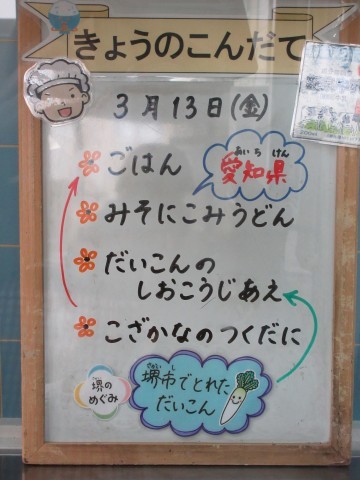 きょうのこんだて
3月13日(金)
ごはん
あいち けん
愛知県
みそにこみうどん
だいこんの
しおこうじあえ
こざかなのつくだに
堺の
めぐみ
さかい し
堺市でとれた
だいこん